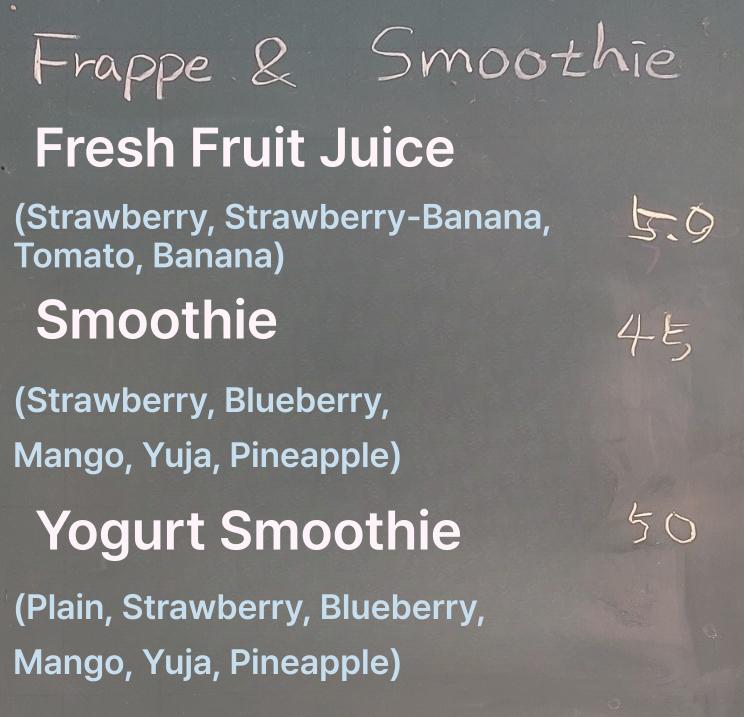 Frappe & Smoothie
Fresh Fruit Juice
(Strawberry, Strawberry-Banana, 5.0
Tomato, Banana)
Smoothie 45
(Strawberry, Blueberry,
Mango, Yuja, Pineapple)
Yogurt Smoothie 50
(Plain, Strawberry, Blueberry,
Mango, Yuja, Pineapple)